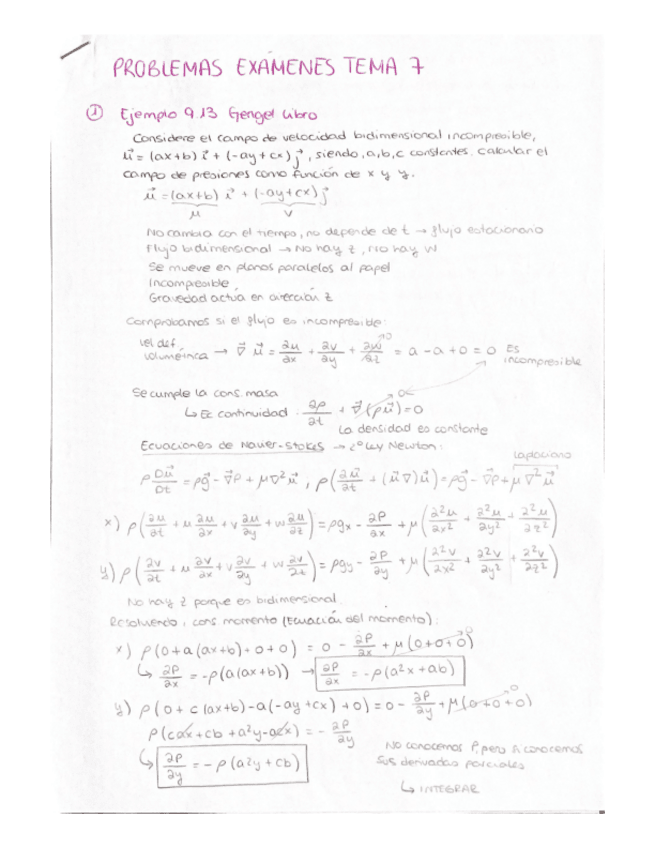 PROBLEMAS EXÁMENES TEMA 7
① Ejemplo 9.13 Gengel Libro
Considere el campo de velocidad bidimensional incompresible,
u⃗ = (ax+b) i⃗ + (-ay+cx) j⃗, siendo, a, b, c constantes. Calcular el
campo de presiones como función de x y y.
u⃗ = (ax+b) i⃗ + (-ay+cx) j⃗
u v
No cambia con el tiempo, no depende de t → flujo estacionario
Flujo bidimensional → No hay z, no hay w
Se mueve en planos paralelos al papel
Incompresible
Gravedad actúa en dirección z
Comprobamos si el flujo es incompresible:
vel def. volumétrica → ∇⃗ u⃗ = ∂u/∂x + ∂v/∂y + ∂w/∂z →0 = a - a + 0 = 0 Es incompresible
Se cumple la cons. masa
↳ Ec continuidad · ∂ρ/∂t + ∇⃗(ρu⃗) = 0
La densidad es constante
Ecuaciones de Navier-Stokes → 2º Ley Newton:
laplaciano
ρ Du⃗/Dt = ρg⃗ - ∇⃗P + μ∇²u⃗ , ρ(∂u⃗/∂t + (u⃗∇)u⃗) = ρg⃗ - ∇⃗P + μ∇²u⃗
x) ρ(∂u/∂t + u ∂u/∂x + v ∂u/∂y + w ∂u/∂z) = ρgx - ∂P/∂x + μ(∂²u/∂x² + ∂²u/∂y² + ∂²u/∂z²)
y) ρ(∂v/∂t + u ∂v/∂x + v ∂v/∂y + w ∂v/∂t) = ρgy - ∂P/∂y + μ(∂²v/∂x² + ∂²v/∂y² + ∂²v/∂z²)
No hay z porque es bidimensional.
Resolviendo, cons momento (Ecuación del momento):
x) ρ(0 + a(ax+b) + 0 + 0) = 0 - ∂P/∂x + μ(0+0+0) 0
↳ ∂P/∂x = -ρ(a(ax+b)) → ∂P/∂x = -ρ(a²x + ab)
y) ρ(0 + c(ax+b) - a(-ay+cx) + 0) = 0 - ∂P/∂y + μ(0+0+0) 0
ρ(cax + cb + a²y - acx) = - ∂P/∂y
↳ ∂P/∂y = -ρ(a²y + cb)
No conocemos P, pero sí conocemos
sus derivadas parciales
↳ INTEGRAR